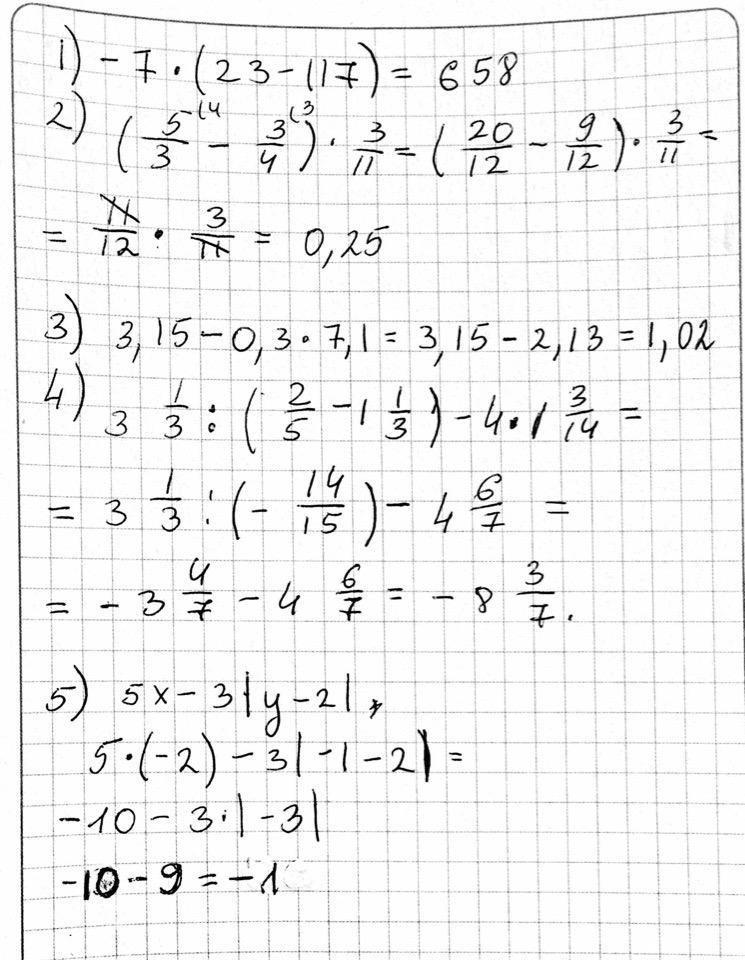 1) - 7 · (23 - 117) = 658
2) (5/3 (4 - 3/4 (3) · 3/11 = (20/12 - 9/12) · 3/11 =
= 11/12 · 3/11 = 0,25
3) 3,15 - 0,3 · 7,1 = 3,15 - 2,13 = 1,02
4) 3 1/3 : (2/5 - 1 1/3) - 4 · 1 3/14 =
= 3 1/3 : (- 14/15) - 4 6/7 =
= - 3 4/7 - 4 6/7 = - 8 3/7.
5) 5x - 3|y - 2|,
5 · (-2) - 3|-1 - 2| =
-10 - 3 · |-3|
-10 - 9 = -1